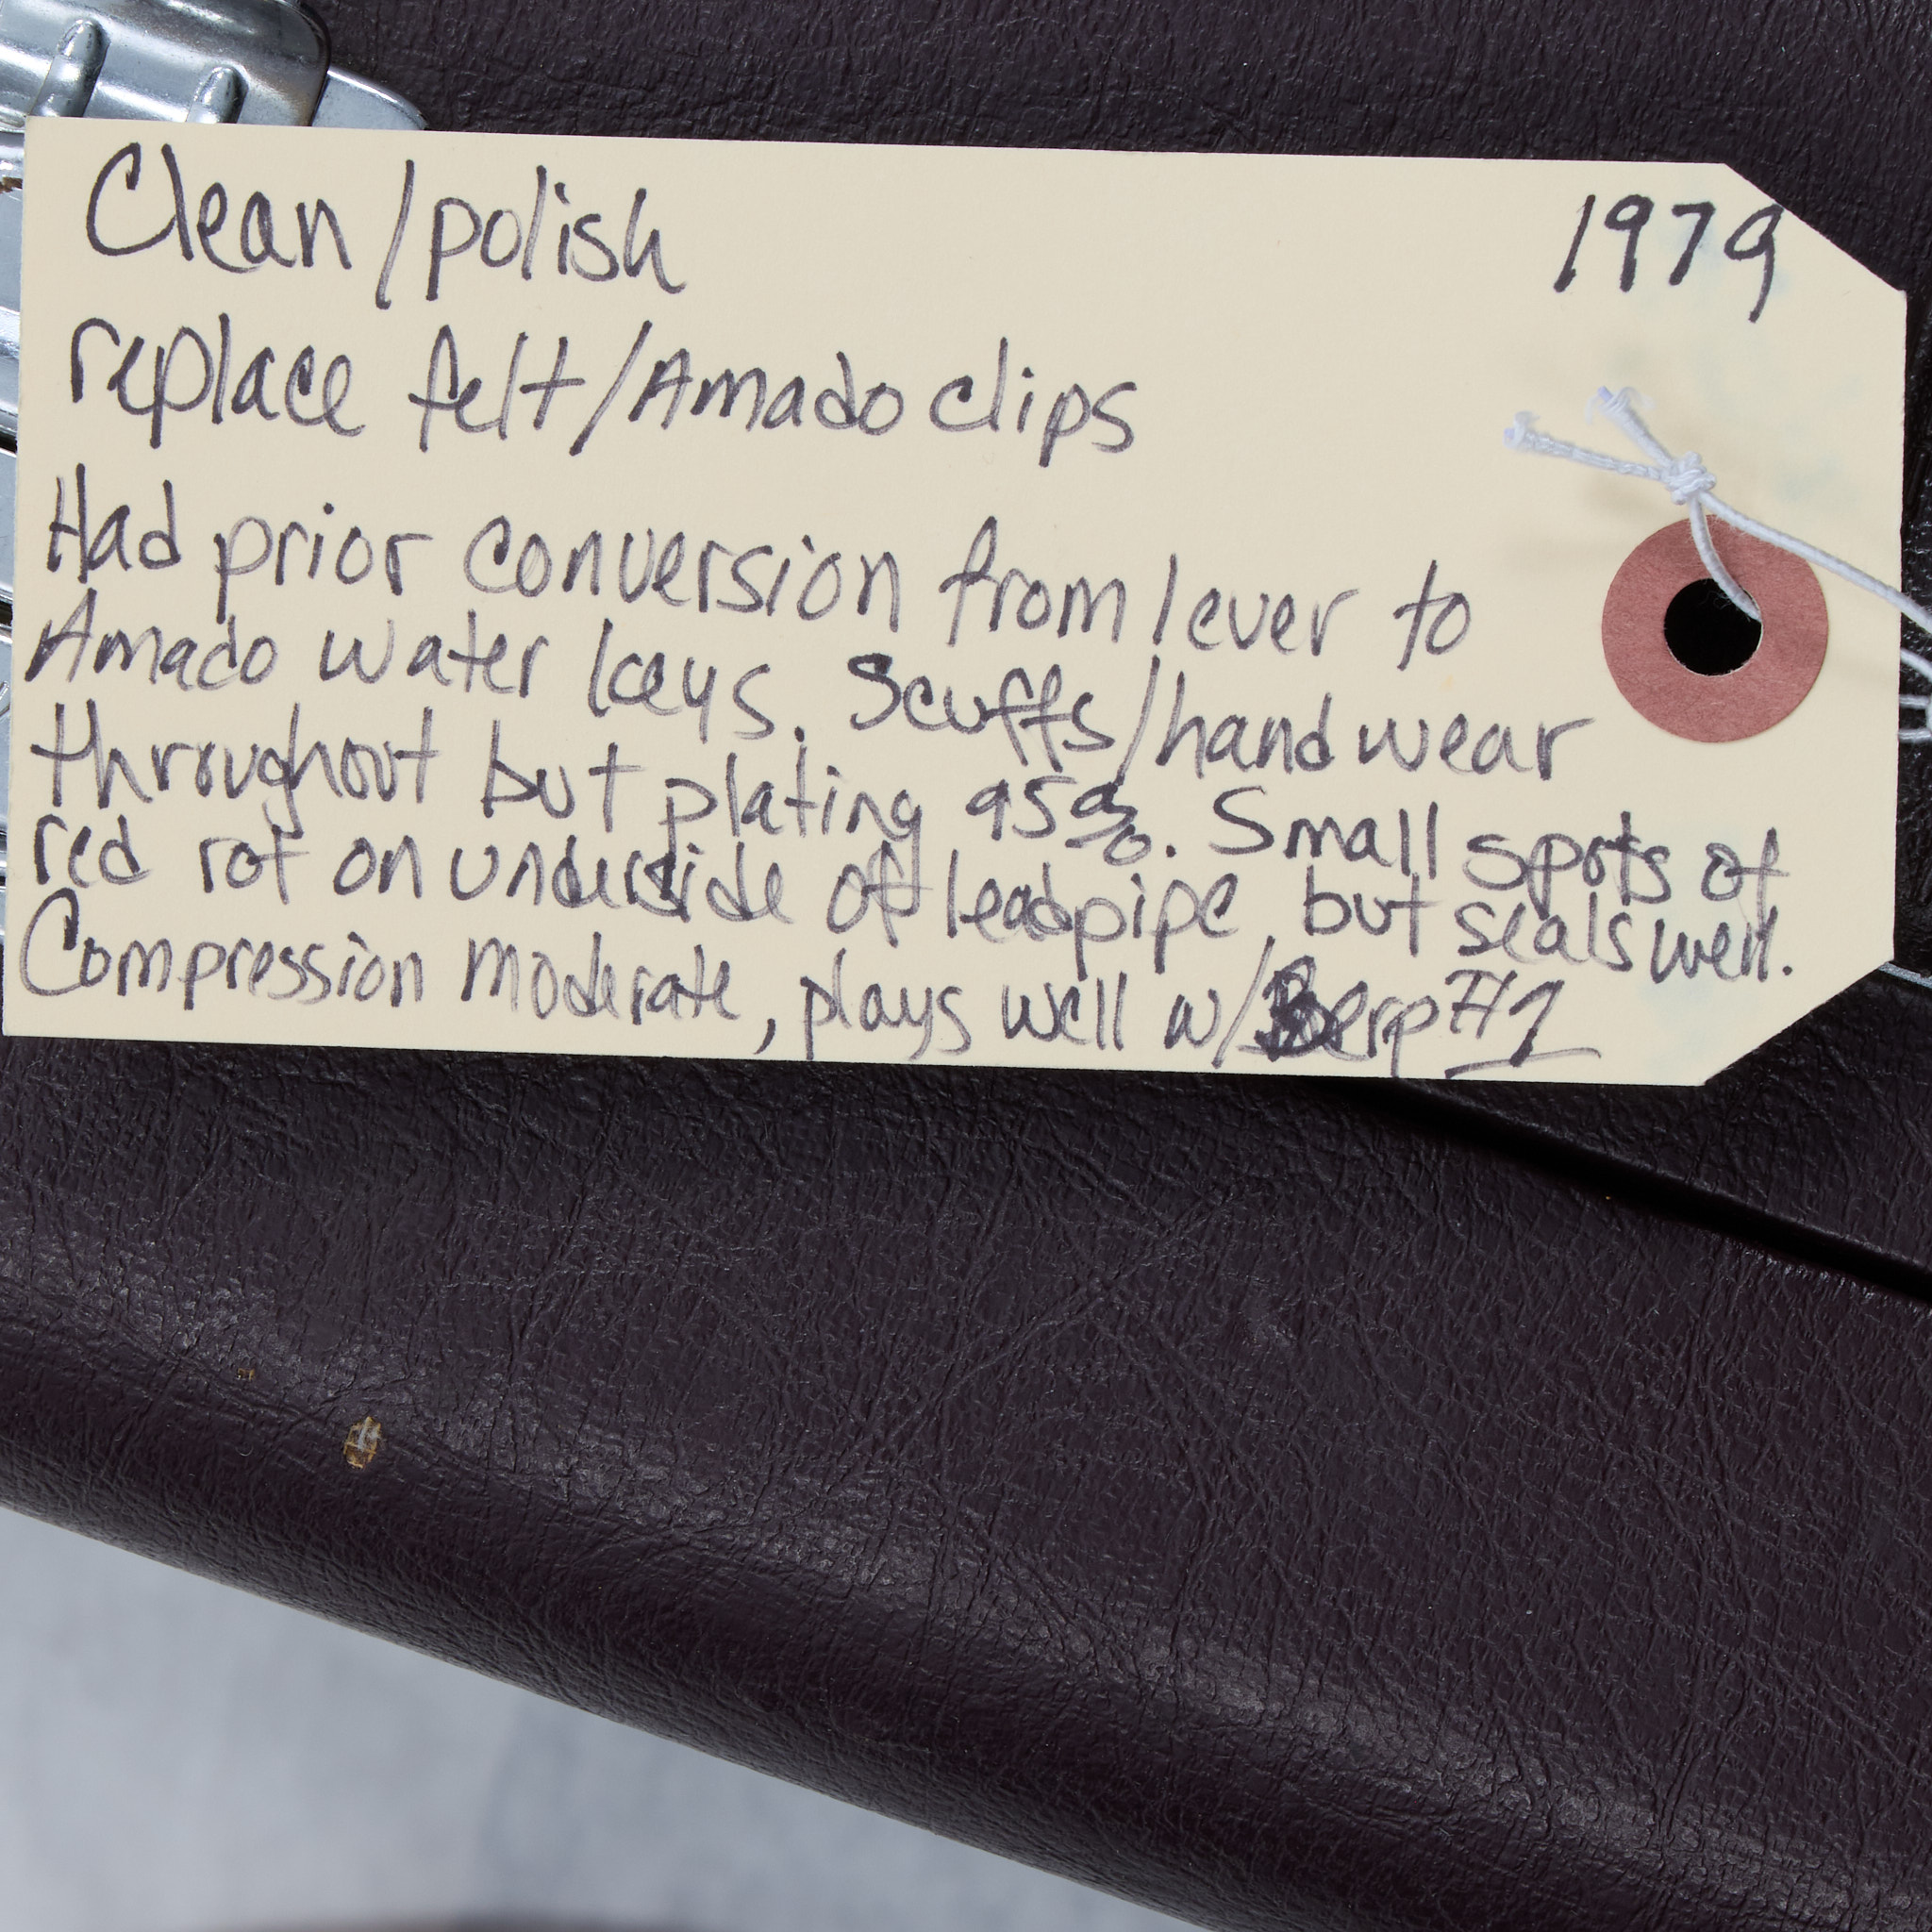 1979
Clean/polish
replace felt/Amado clips
Had prior conversion from lever to
Amado water keys. Scuffs/hand wear
throughout but plating 95%. Small spots of
red rot on underside of leadpipe, but seals well.
Compression moderate, plays well w/Berp #1